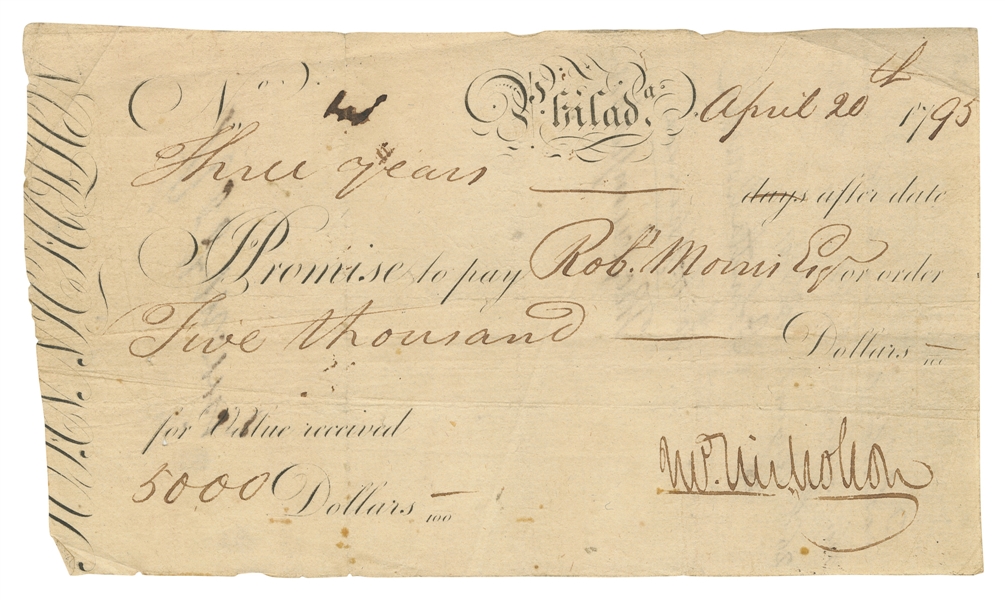 No. Philada. April 20th 1795
Three years — days after date
I Promise to pay Robt. Morris Esqr or order
Five thousand — Dollars —/100
for Value received
5000 Dollars —/100
Jno. Nicholson